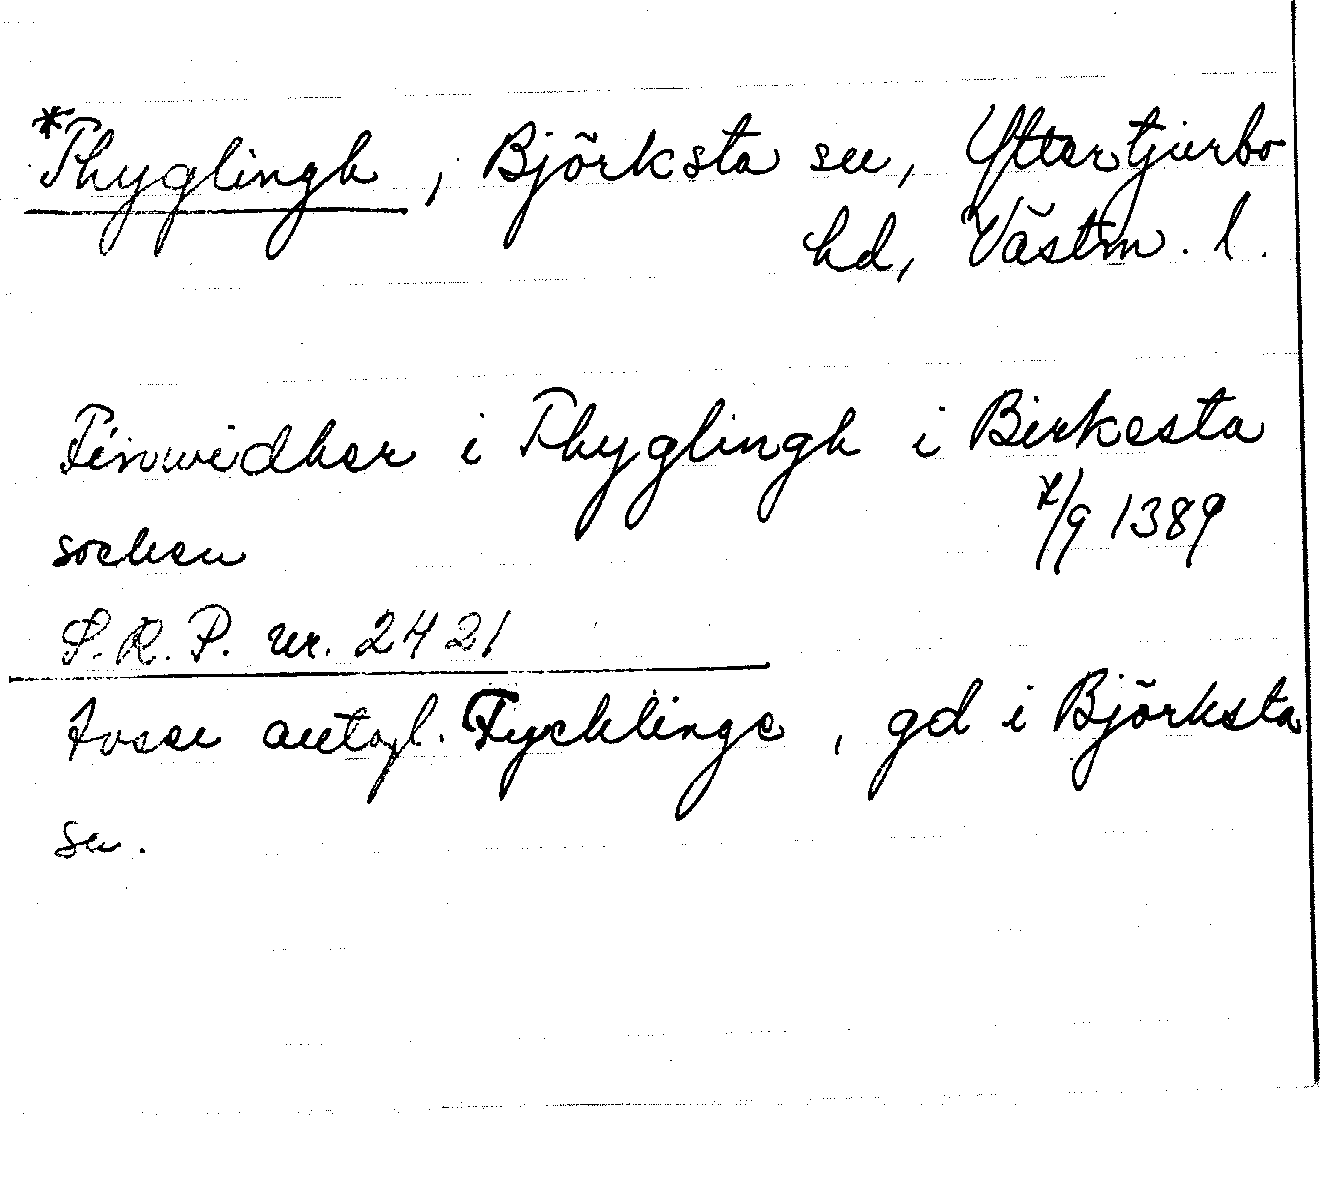 *Thyglingh, Björksta sn, Yttertjurbo
hd, Västm. l.
Finwidher i Thyglingh i Birkesta
socken 7/9 1389
S.R.P. nr. 2421
Avser antagl. Tycklinge, gd i Björksta
sn.